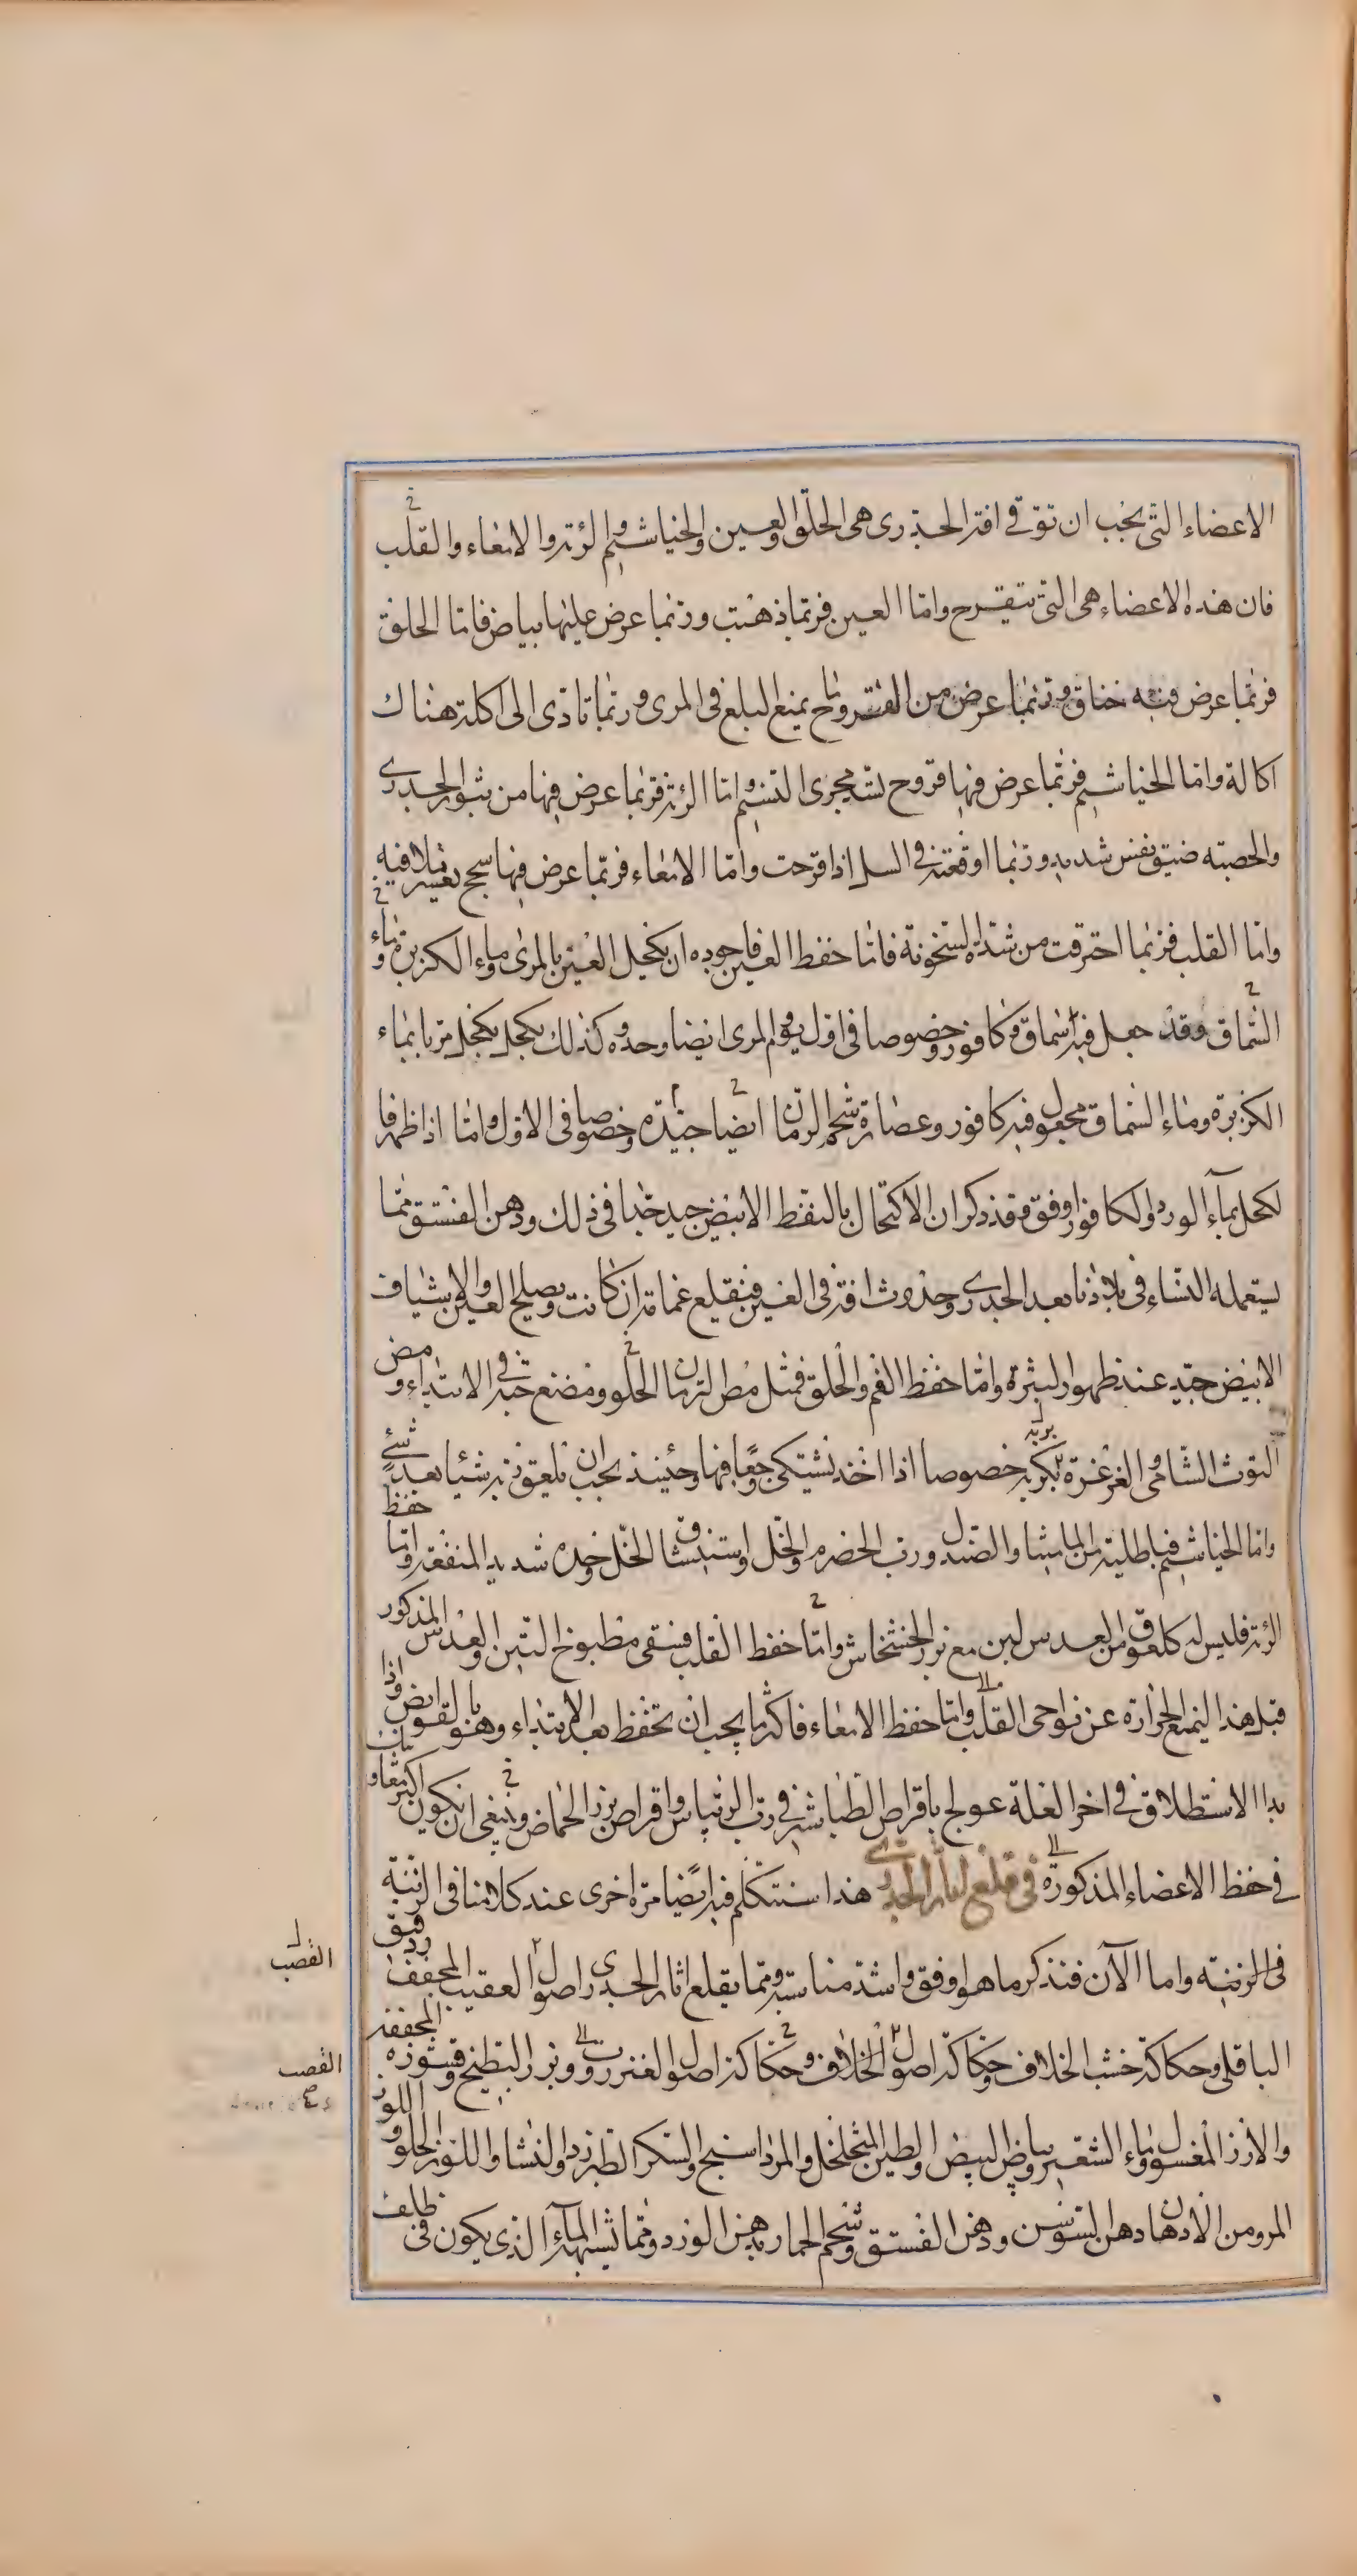 الاعضاء التى يجب ان توقى افة الجدرى هى الحلق والعين والخياشيم والرئة والامعاء والقلب
فان هذه الاعضاء هى التى تتقرح واما العين فربما ذهبت وربما عرض عليها بياض فاما الحلق
فربما عرض فيه خناق وربما عرض من القروح ما يمنع البلع فى المرى وربما تادى الى اكلة هناك
اكالة واما الخياشيم فربما عرض فيها قروح تسد مجرى التنسم واما الرئة فربما عرض فيها من بثور الجدرى
والحصبة ضيق نفس شديد وربما اوقعته فى السل اذا قرحت واما الامعاء فربما عرض فيها سحج يعسر تلافيه
واما القلب فربما احترقت من شدة السخونة فاما حفظ العين فاجوده ان يكحل العين بالمرى وماء الكزبرة وماء
السماق وقد جعل فيه سماق وكافور وخصوصا فى اول يوم المرى ايضا وحده وكذلك يكحل يكحل مربا بماء
الكزبرة وماء السماق مجعول فيه كافور وعصارة شحم الرمان ايضا جيدة وخصوصا فى الاول واما اذا ظهر فا
لكحل بماء الورد والكافور اوفق وقد ذكر ان الاكتحال بالنفط الابيض جيد جدا فى ذلك ودهن الفستق مما
يستعمله النساء فى بلادنا بعد الجدرى وحدوث افة فى العين فيقلع غمامة ان كانت ويصلح العين والاشياف
الابيض جيد عند ظهور البثرة واما حفظ الفم والحلق فمثل مص الرمان الحلو ومضغ حبه فى الابتداء ومص
التوث الشامى والغرغرة بكربه بربه خصوصا اذا اخذ يشتكى وجعا فيها وحينئذ يجب ان يلعق ربه شيئا بعد شئ
واما حفظ الخياشيم فباطلية من الماميثا والصندل ورب الحصرم والخل واستنشاق الخل وحده شديد المنفعة واما
الرئة فليس له كلعوق من العدس لين مع بزر الخشخاش واما حفظ القلب فسقى مطبوخ التين والعدس المذكور
قبل هذا ليمنع الحرارة عن نواحى القلب واما حفظ الامعاء فاكثر ما يجب ان تحفظ بعد الابتداء وهو بالقوابض واذا
بدا الاستطلاق فى اخر العلة عولج باقراص الطباشير فى رب الريباس واقراص بزر الحماض وينبغى ان يكون
فى حفظ الاعضاء المذكورة فى قلع اثار الجدرى هذا سنتكلم فيه ايضا مرة اخرى عند كلامنا فى الزينة
فى الزينة واما الآن فنذكر ما هو اوفق واشد مناسبة ومما يقلع اثار الجدرى اصول العقيب المجفف دقيق
الباقلى وحكاكة خشب الخلاف وحكاكة اصول الخلاف وحكاكة اصول العنزروت وبزر البطيخ وقشوره المجففة
والارز المغسول وماء الشعير وبياض البيض والطين المتخلخل والمرداسنج والسكر الطبرزد والنشا واللوز الحلو واللوز
المر ومن الادهان دهن السوسن ودهن الفستق وشحم الحمار بدهن الورد ومما يشبه الماء الذى يكون فى ظلف
القصب
القصب